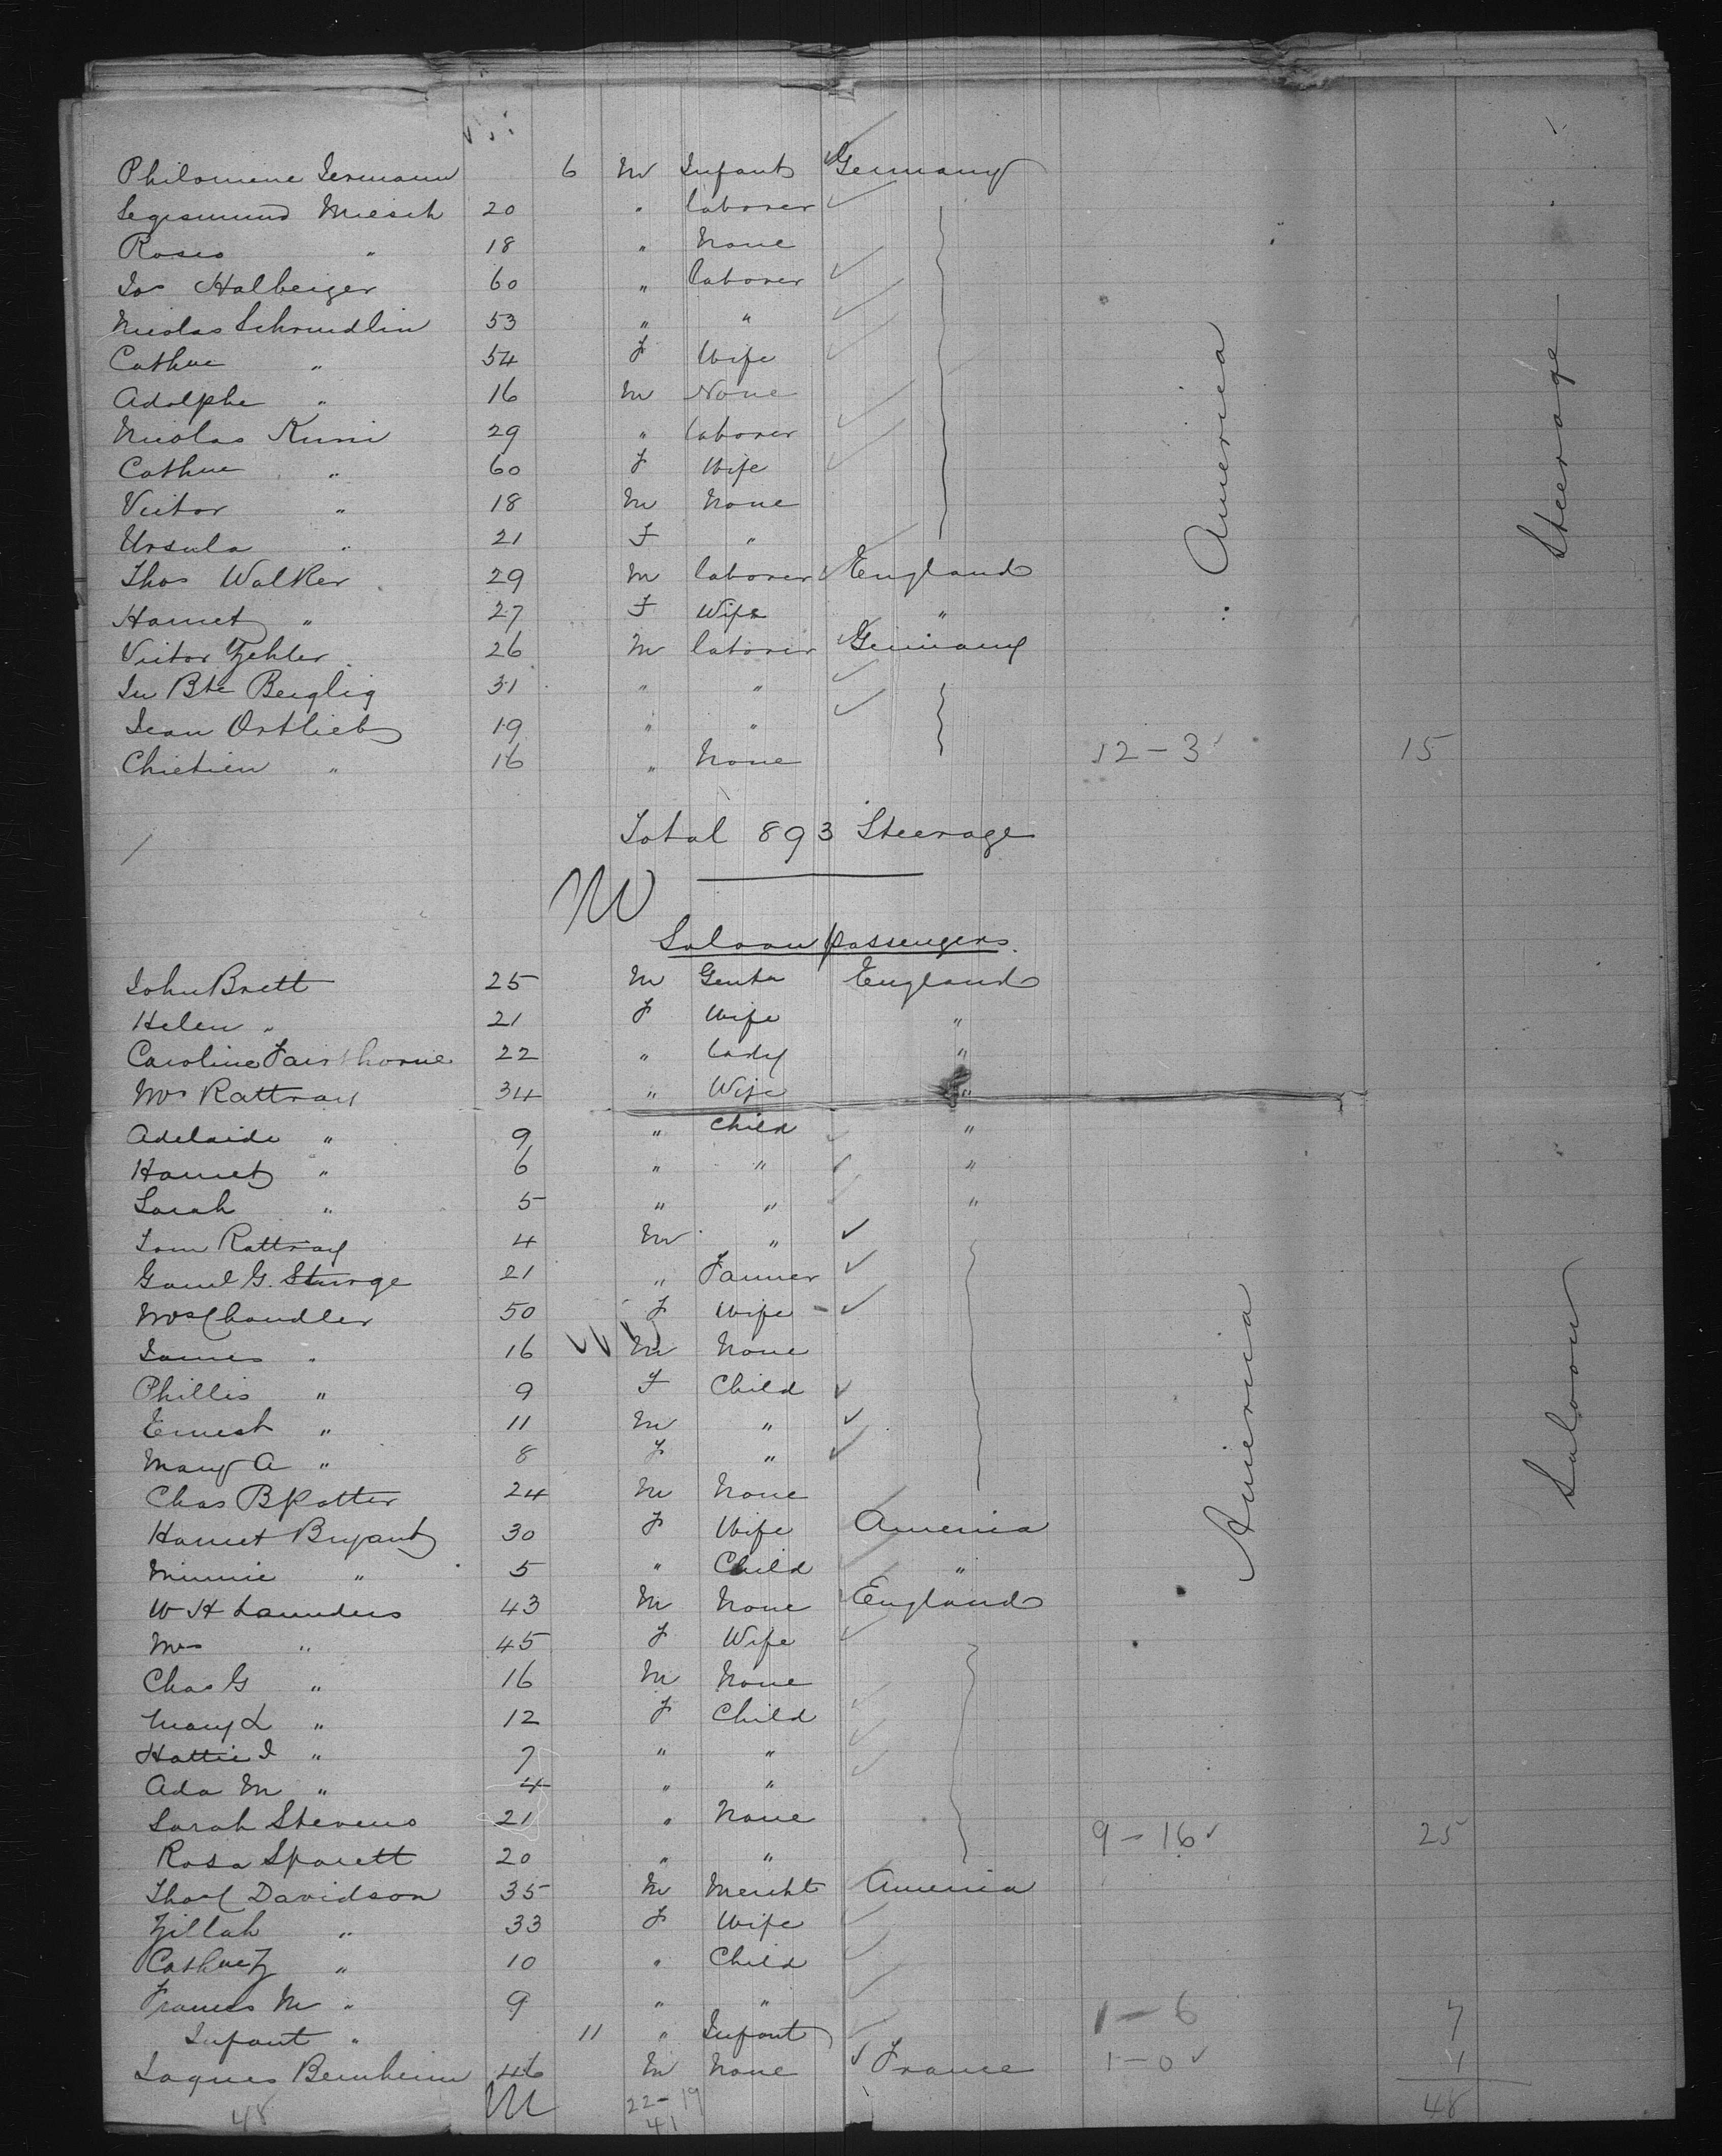 Philomene Iermann 6 M Infant Germany
Segismund Miesch 20 " laborer
Roses " 18 " None
Jos Halbeiger 60 " laborer
Nicolas Schmidlin 53 " "
Cathne " 54 F Wife
Adolphe " 16 M None
Nicolas Kuni 29 " laborer
Cathne " 60 F Wife
Victor " 18 M None
Ursula " 21 F "
Thos Walker 29 M laborer England
Harriet " 27 F Wife "
Victor Zehler 26 M laborer Germany
Jn Bte Beuglig 31 " "
Jean Ortlieb 19 " "
Chretien " 16 " None 12-3 15
America
Steerage
Total 893 Steerage
Saloon passengers.
John Brett 25 M Gentn England
Helen " 21 F Wife "
Caroline Fairthorne 22 " lady "
Mrs Rattray 34 " Wife "
Adelaide " 9 " Child "
Harriet " 6 " " "
Sarah " 5 " " "
Tom Rattray 4 M "
G. Sturge 21 " Farmer
Mrs Chandler 50 F Wife
James " 16 M None
Phillis " 9 F Child
Ernest " 11 M "
Mary A " 8 F "
Chas B Potter 24 M None
Harriet Bryant 30 F Wife America
Minnie " 5 " Child "
W H Saunders 43 M None England
Mrs " 45 F Wife
Chas G " 16 M None
Mary L " 12 F Child
Hattie I " 7 " "
Ada M " 4 " "
Sarah Stevens 21 " None
Rosa Sparett 20 " " 9-16 25
Thos C Davidson 35 M Mercht America
Zillah " 33 F Wife
Cathne Z " 10 " Child
Frances M " 9 " "
Infant " 11 " Infant 1-6 7
Jaques Bernheim 46 M None France 1-0 1
America
Saloon
48 22-19 48
41